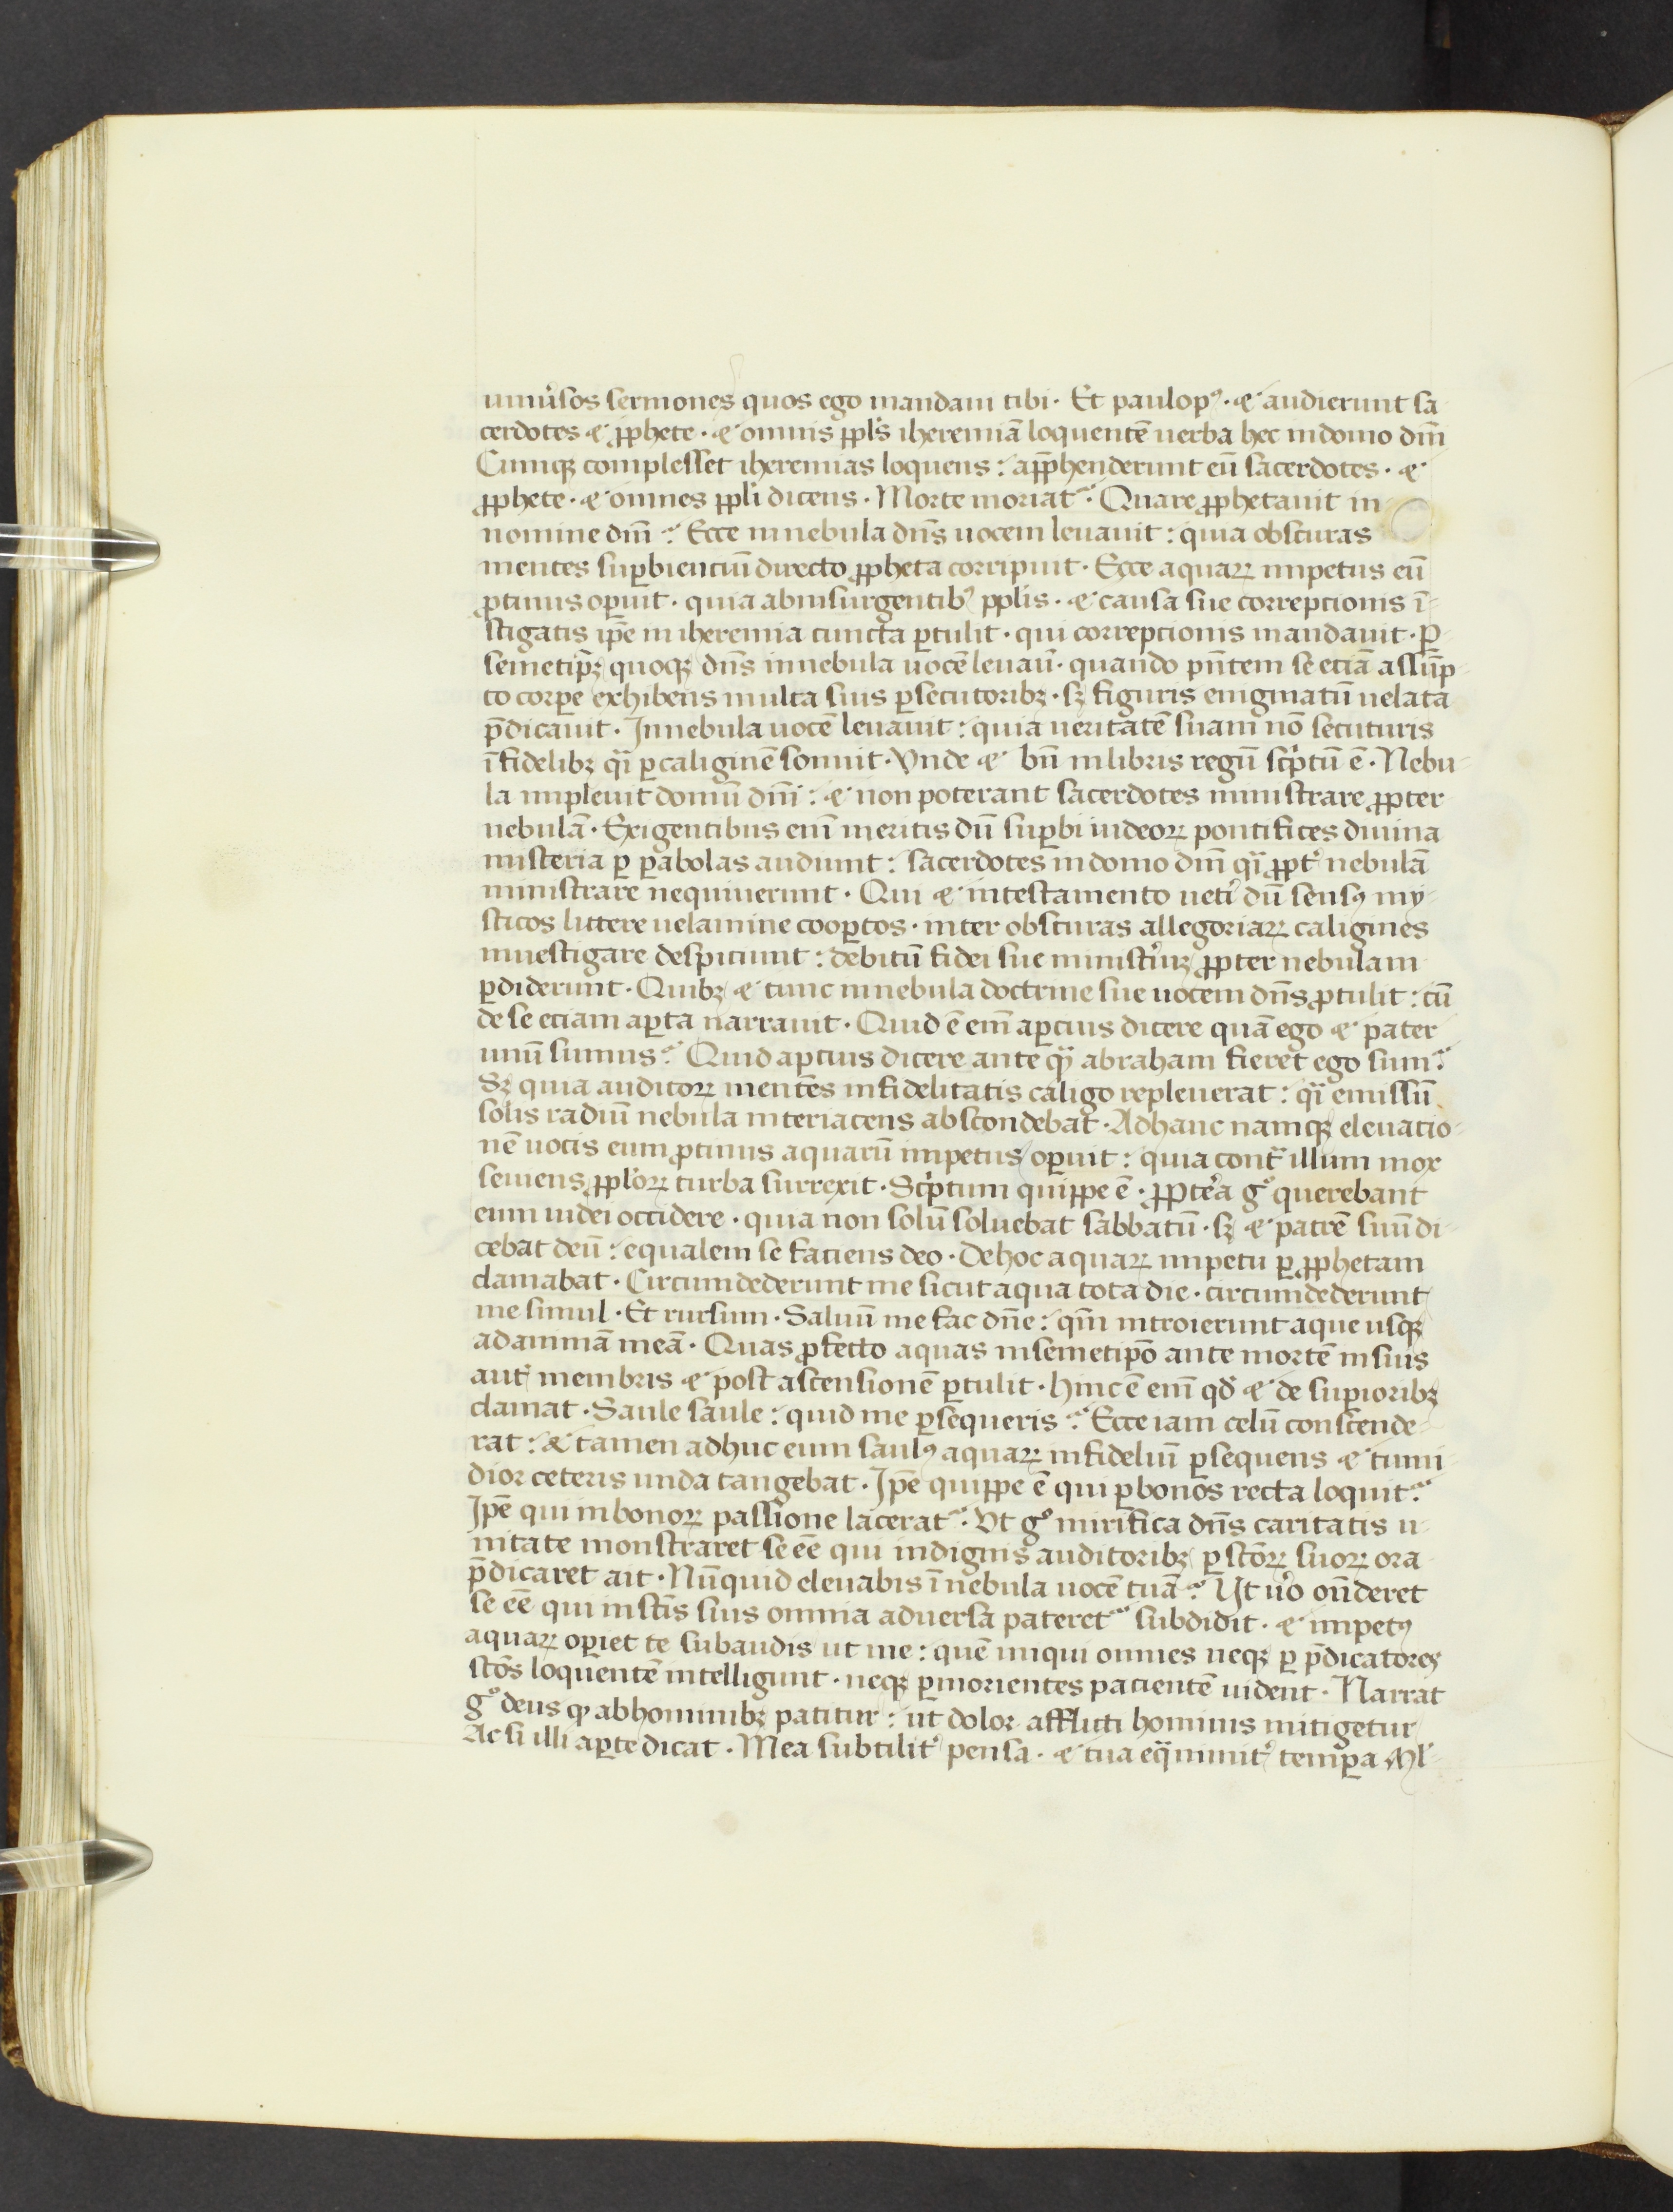 uniu͛sos sermones quos ego mandaui tibi · Et paulop᷒ · ⁊ audierunt sa
cerdotes ⁊ ꝓphete · ⁊ omnis ppl̃s iheremiã loquentẽ uerba hec in domo dñi
Cumqꝫ complesset iheremias loquens : app̃henderunt eũ sacerdotes · ⁊
ꝓphete · ⁊ omnes ppl̃i dicens · Morte moriat᷑ · Quare ꝓphetauit in
nomine dñi ? Ecce in nebula dñs uocem leuauit : quia obscuras
mentes suꝑbientiũ directo ꝓpheta corripuit · Ecce aquaꝝ impetus eũ
ꝓtinus oꝑuit · quia ab insurgentibꝰ ppl̃is · ⁊ causa sue correpcionis ĩ-
stigatis ip̃e in iheremia cuncta ꝑtulit · qui correpcionis mandauit · Ꝑ-
semetip̃ꝫ quoqꝫ dñs in nebula uocẽ leuau͛ · quando pñtem se eciã assũp-
to corꝑe exhibens multa suis ꝑsecutoribꝫ · sꝫ figuris enigmatũ uelata
p̃dicauit · In nebula uocẽ leuauit : quia ueritatẽ suam nõ secuturis
ĩfidelibꝫ q̃i ꝑ caliginẽ sonuit · Vnde ⁊ bñ in libris regũ sc͛ptũ ẽ · Nebu-
la impleuit domũ dñi : ⁊ non poterant sacerdotes ministrare ꝓpter
nebulã · Exigentibus eni͂ meritis dũ suꝑbi iudeoꝝ pontifices diuina
misteria ꝑ ꝑabolas audiunt : sacerdotes in domo dñi q̃i ꝓpt͛ nebulã
ministrare nequiuerunt · Qui ⁊ in testamento uet͛i dũ sensꝰ my-
sticos littere uelamine cooꝑtos · inter obscuras allegoriaꝝ caligines
inuestigare despiciunt : debitũ fidei sue minist͛iuꝫ ꝓpter nebulam
ꝑdiderunt · Quibꝫ ⁊ tunc in nebula doctrine sue uocem dñs ꝓtulit : cũ
de se eciam aꝑta narrauit · Quid ẽ eni͂ aꝑcius dicere quã ego ⁊ pater
unũ sumus ? Quid apcius dicere ante q̃ꝫ abraham fieret ego sum ?
Sꝫ quia auditoꝝ mentes infidelitatis caligo repleuerat : q̃i emissũ
solis radiũ nebula interiacens abscondebat · Ad hanc namqꝫ eleuacio-
nẽ uocis eum ꝓtinus aquarũ impetus oꝑuit : quia cont͛ illum mox
seuiens ppl̃oꝝ turba surrexit · Sc͛ptum quippe ẽ · ꝓpt͛ea gͦ querebant
eum iudei occidere · quia non solũ soluebat sabbatũ · sꝫ ⁊ patrẽ suũ di-
cebat deũ : equalem se faciens deo · De hoc aquaꝝ impetu ꝑ ꝓphetam
clamabat · Circumdederunt me sicut aqua tota die · circumdederunt
me simul · Et rursum · Saluũ me fac dñe : qm̃ introierunt aque usqꝫ
ad animã meã · Quas ꝓfecto aquas in semetip̃o ante mortẽ in suis
aut͛ membris ⁊ post ascensionẽ ꝑtulit · hinc ẽ eni͂ qd̃ ⁊ de suꝑioribꝫ
clamat · Saule saule : quid me ꝑsequeris ? Ecce iam celũ conscende-
rat : & tamen adhuc eum saulꝰ aquaꝝ infideliũ ꝑsequens ⁊ tumi-
dior ceteris unda tangebat · Ip̃e quippe ẽ qui ꝑ bonos recta loquit᷑
Ip̃e qui in bonoꝝ passione lacerat᷑ · Vt gͦ mirifica dñs caritatis u-
nitate monstraret se ẽe qui indignis auditoribꝫ ꝑ sc̃oꝝ suoꝝ ora
p̃dicaret ait · Nũquid eleuabis ĩ nebula uocẽ tuã ? Ut u͛o oñderet
se ẽe qui in sc̃is suis omnia aduersa pateret᷑ subdidit · ⁊ impetꝰ
aquaꝝ oꝑiet te subaudis ut me : quẽ iniqui omnes neqꝫ ꝑ p̃dicatores
sc̃os loquentẽ intelligunt · neqꝫ ꝑ morientes pacientẽ uident · Narrat
gͦ deus qꝫ ab hominibꝫ patitur : ut dolor afflicti hominis mitigetur
Ac si illi aꝑte dicat · Mea subtilit͛ pensa · ⁊ tua eq̃nimit͛ temꝑa Ml̃-